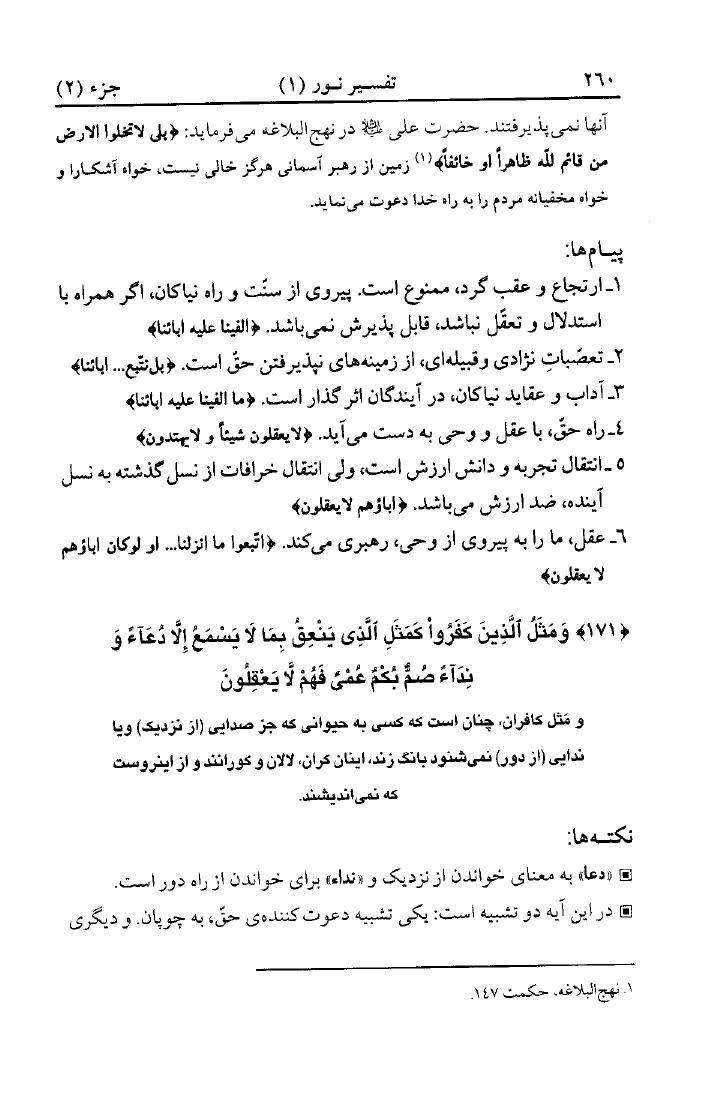 ۲۶۰ تفسیر نور (۱) جزء (۲)
آنها نمی‌پذیرفتند. حضرت علی ﷷ در نهج‌البلاغه می‌فرماید: ﴿بلی لاتخلوا الارض
من قائم للّه ظاهراً او خائفاً﴾(۱) زمین از رهبر آسمانی هرگز خالی نیست، خواه آشکارا و
خواه مخفیانه مردم را به راه خدا دعوت می‌نماید.
پیـام‌ها:
۱ـ ارتجاع و عقب گرد، ممنوع است. پیروی از سنّت و راه نیاکان، اگر همراه با
استدلال و تعقّل نباشد، قابل پذیرش نمی‌باشد. ﴿الفینا علیه ابائنا﴾
۲ـ تعصّباتِ نژادی و قبیله‌ای، از زمینه‌های نپذیرفتن حقّ است. ﴿بل نتّبع... ابائنا﴾
۳ـ آداب و عقاید نیاکان، در آیندگان اثر گذار است. ﴿ما الفینا علیه ابائنا﴾
٤ـ راه حقّ، با عقل و وحی به دست می‌آید. ﴿لایعقلون شیئاً و لایهتدون﴾
۵ ـ انتقال تجربه و دانش ارزش است، ولی انتقال خرافات از نسل گذشته به نسل
آینده، ضد ارزش می‌باشد. ﴿اباؤهم لایعقلون﴾
٦ـ عقل، ما را به پیروی از وحی، رهبری می‌کند. ﴿اتّبعوا ما انزلنا... او لوکان اباؤهم
لا یعقلون﴾
﴿۱۷۱﴾ وَمَثَلُ ٱلَّذِينَ كَفَرُواْ كَمَثَلِ ٱلَّذِى يَنْعِقُ بِمَا لَا يَسْمَعُ إِلَّا دُعَآءً وَ
نِدَآءً صُمٌّ بُكْمٌ عُمْىٌ فَهُمْ لَا يَعْقِلُونَ
و مَثل کافران، چنان است که کسی به حیوانی که جز صدایی (از نزدیک) ویا
ندایی (از دور) نمی‌شنود بانگ زند، اینان کران، لالان و کورانند و از اینروست
که نمی‌اندیشند.
نکتـه‌ها:
▣ «دعا» به معنای خواندن از نزدیک و «نداء» برای خواندن از راه دور است.
▣ در این آیه دو تشبیه است: یکی تشبیه دعوت کننده‌ی حقّ، به چوپان. و دیگری
۱. نهج‌البلاغه، حکمت ۱٤۷.